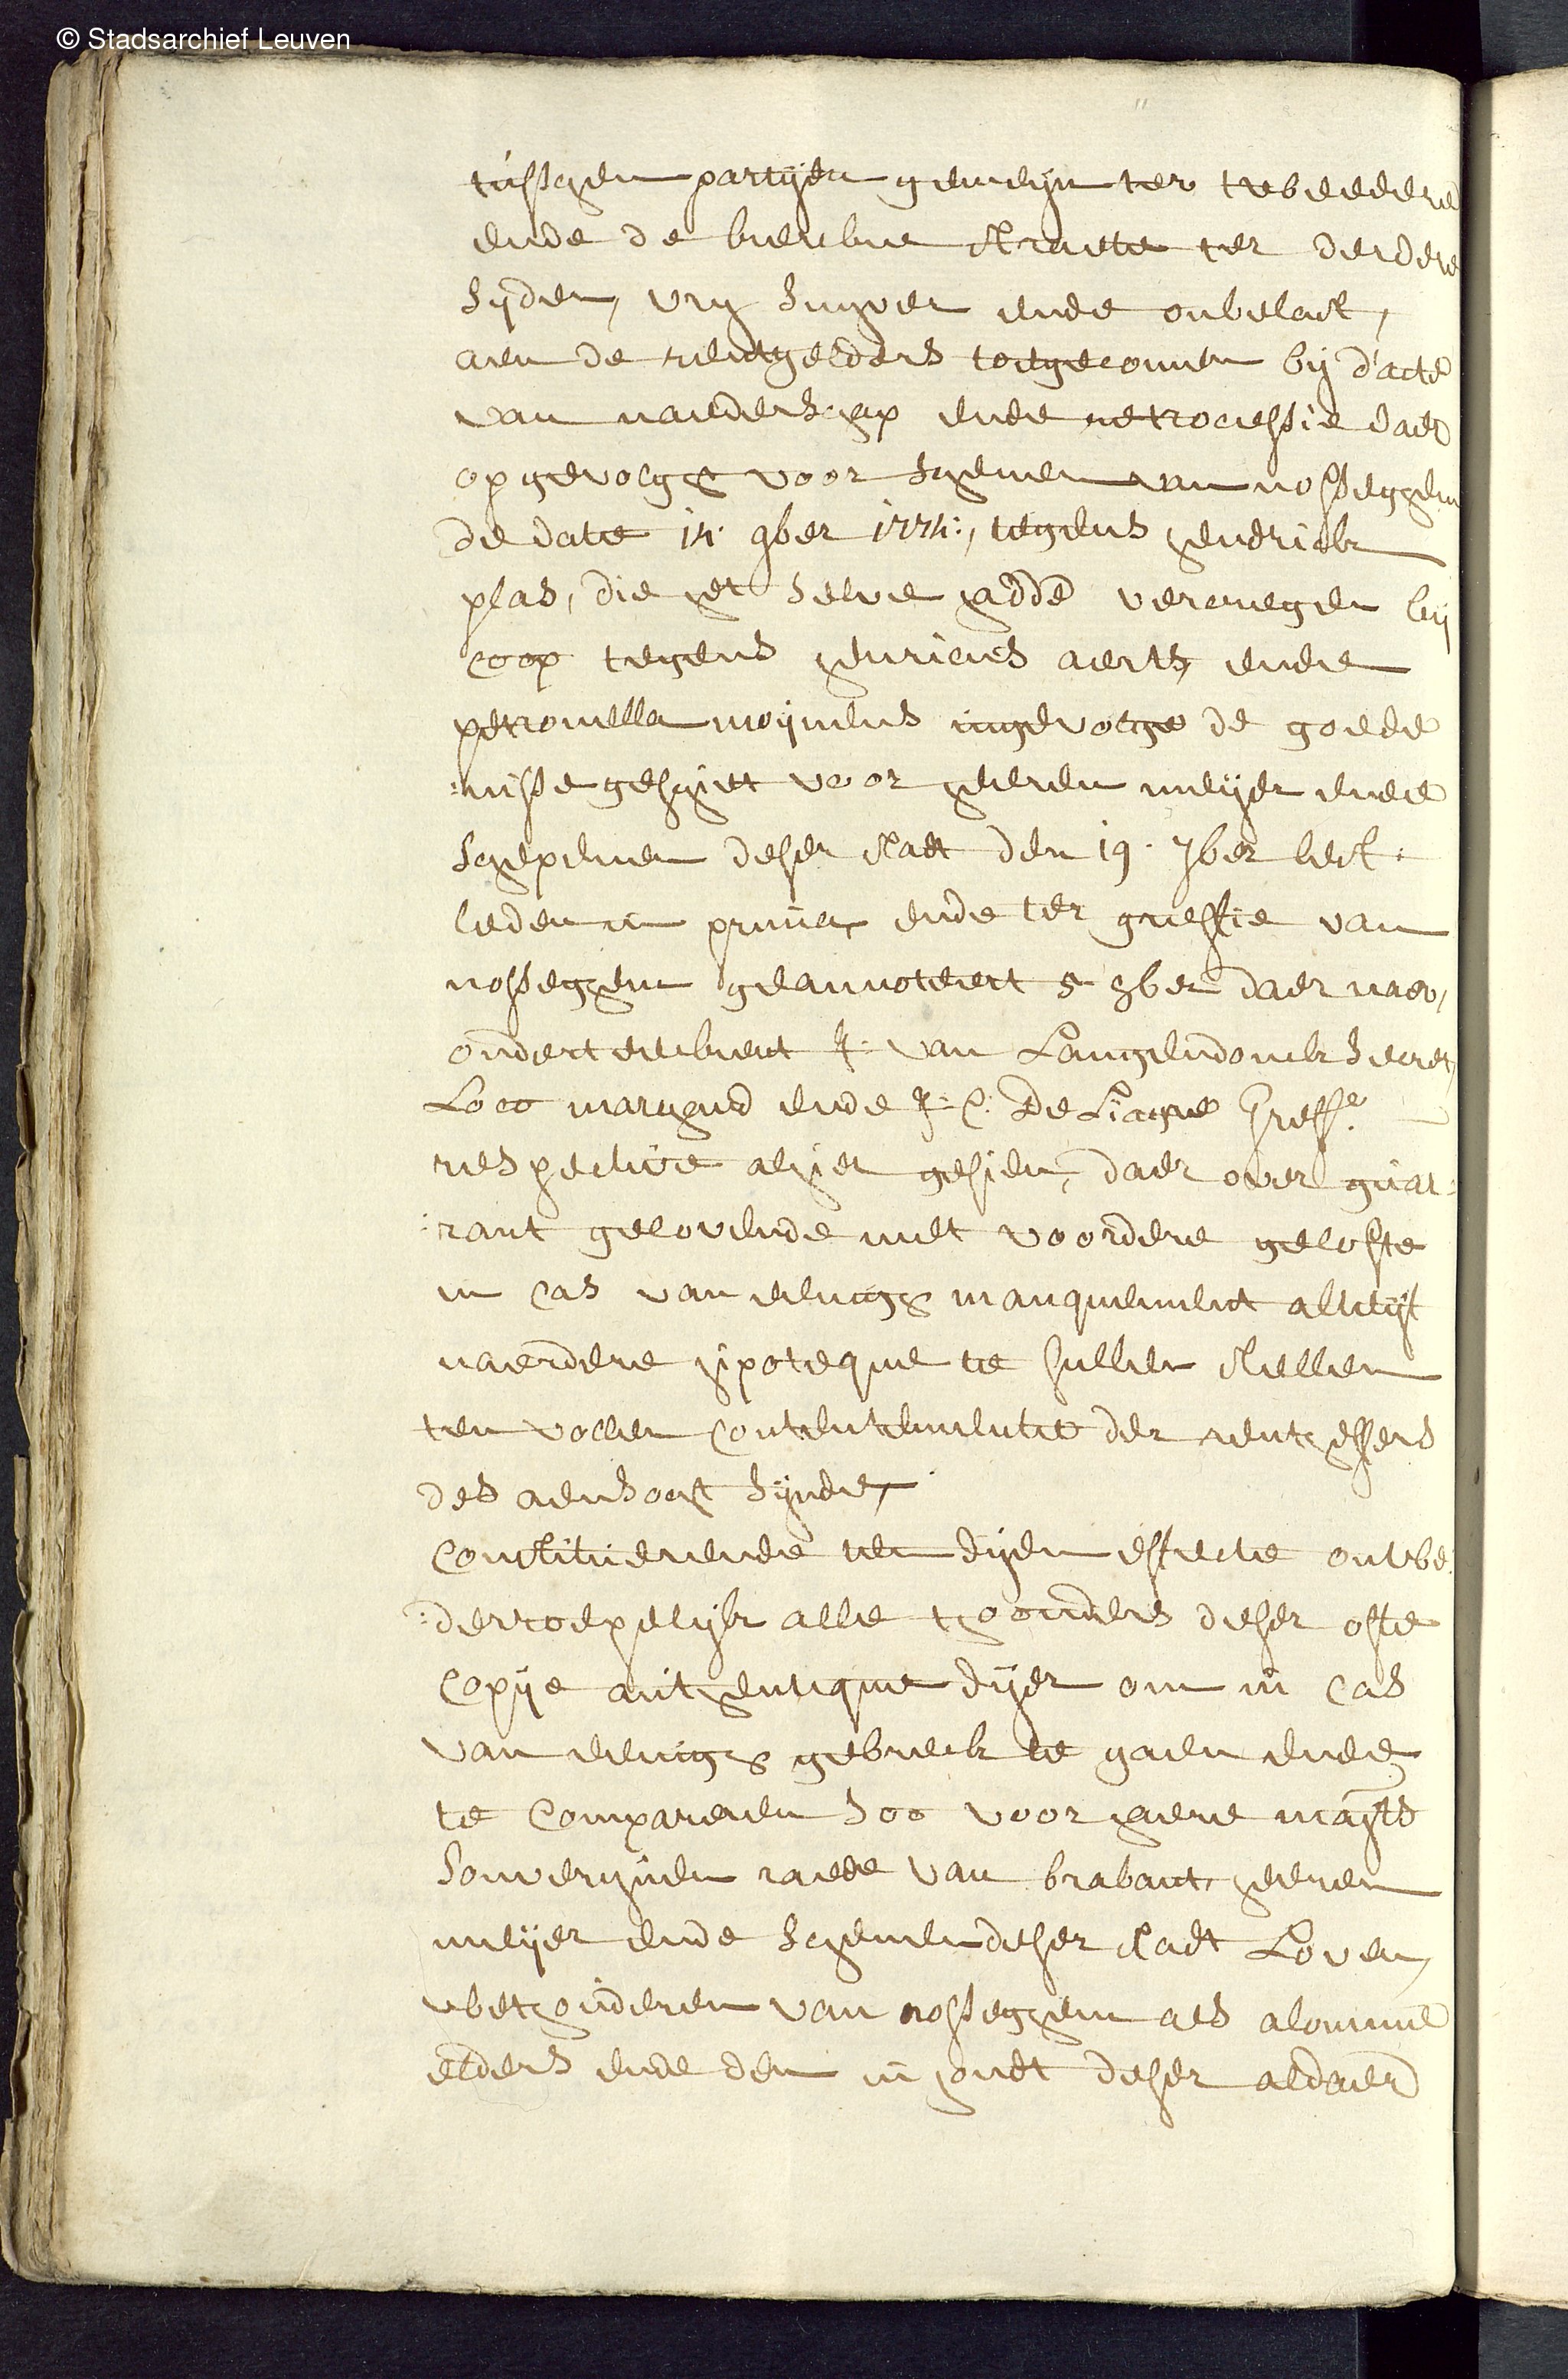 © Stadsarchief Leuven
tusschen partijen gemeijn ter tweedere
ende de straete ter derdere
sijden, vrij suyver ende onbelast,
aen de rentgelders toegecomen bij d'acte
van naerderschap ende retrocessie daer
op gevolght voor schepenen van nosseghem
de date 14. 9ber 1774:, tegens hendrick
plas, die het selve hadde vercregen bij
coop tegens henricus aerts ende
petronella moijmens ingevolge de goede
:nisse geschiet voor heeren meijer ende
schepenen deser stadt den 19. 7ber lest:
leden in prima ende ter greffie van
nosseghem geannoteert 5 9ber daer naer,
onderteeckent J: van Langendonck secret,
Loco ende J: C: De Greff.e
respective alhier gesien, daer over guar:
:rant gelovende met voordere gelofte
in cas van eenigh manquement altijt
naerdere hipoteque te sullen stellen
ten vollen contentemente der rentheffers
des aensocht sijnde,
Constituerende ten dijen effecte onwe:
:derroepelijck alle thoonders deser ofte
Copije authentique dijer om in cas
van eenigh gebreck te gaen ende
te compareren soo voor haere maj.ts
souvereijnen raede van brabant, heeren
meijer ende schepenen deser stadt Loven,
wethouderen van nosseghem als alomme
elders ende den inhoudt deser aldaer